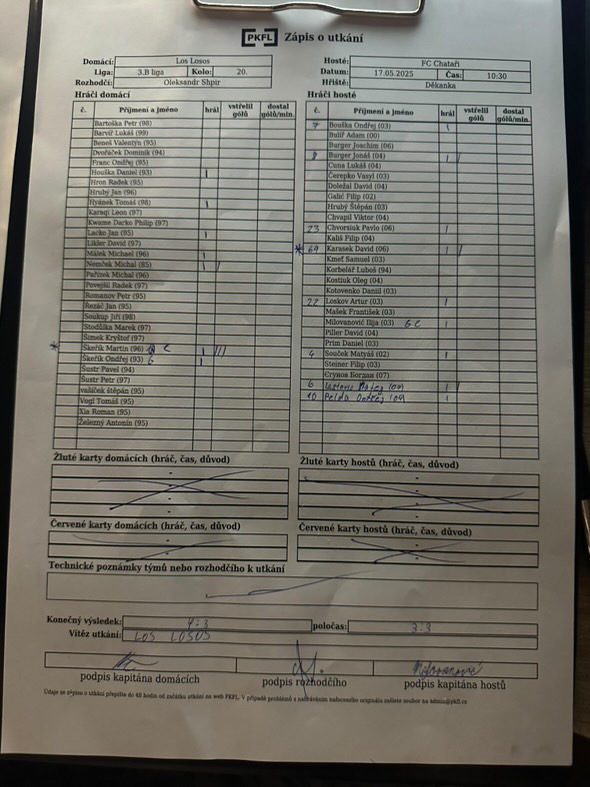 PKFL Zápis o utkání
Domácí: Los Losos
Liga: 3.B liga Kolo: 20.
Rozhodčí: Oleksandr Shpir
Hosté: FC Chataři
Datum: 17.05.2025 Čas: 10:30
Hřiště: Děkanka
Hráči domácí
č. Příjmení a jméno hrál vstřelil gólů dostal gólů/min.
Bartoška Petr (98)
Barvíř Lukáš (99)
Beneš Valentýn (95)
Dvořáček Dominik (94)
Franc Ondřej (95)
Houška Daniel (93) I
Hron Radek (95)
Hrubý Jan (96)
Hyánek Tomáš (98) I
Karaqi Leon (97)
Kwame Darko Philip (97)
Lacko Jan (95) I
Likler David (97)
Málek Michael (96) I
Nemček Michal (85) I /
Pařízek Michal (96)
Povejšil Radek (97)
Romanov Petr (95)
Řezáč Jan (95)
Soukup Jiří (98)
Stodůlka Marek (97)
Šimek Kryštof (97)
* Škeřík Martin (96) C I ///
Škeřík Ondřej (93) G I
Šustr Pavel (94)
Šustr Petr (97)
vašíček štěpán (95)
Vogl Tomáš (95)
Xia Roman (95)
Železný Antonín (95)
Hráči hosté
č. Příjmení a jméno hrál vstřelil gólů dostal gólů/min.
7 Bouška Ondřej (03) I
Bulíř Adam (00)
Burger Joachim (06)
8 Burger Jonáš (04) I /
Cuna Lukáš (04)
Čerepko Vasyl (03)
Doležal David (04)
Galić Filip (02)
Hrubý Štěpán (03)
Chvapil Viktor (04)
23 Chvorsiuk Pavlo (06) I
Kališ Filip (04)
* 69 Karasek David (06) I /
Kmeť Samuel (03)
Korbelář Luboš (94)
Kostiuk Oleg (04)
Kotovenko Daniil (03)
22 Loskov Artur (03) I
Mašek František (03)
Milovanović Ilija (03) G C I
Piller David (04)
Prim Daniel (03)
4 Souček Matyáš (02) I
Steiner Filip (03)
Єрупов Богдан (07)
6 Matěj (04) I /
10 Pelda Ondřej (04) I
Žluté karty domácích (hráč, čas, důvod)
Žluté karty hostů (hráč, čas, důvod)
Červené karty domácích (hráč, čas, důvod)
Červené karty hostů (hráč, čas, důvod)
Technické poznámky týmů nebo rozhodčího k utkání
Konečný výsledek: 4:3 poločas: 3:3
Vítěz utkání: LOS LOSOS
podpis kapitána domácích podpis rozhodčího podpis kapitána hostů
Údaje se zápisu o utkání přepište do 48 hodin od začátku utkání na web PKFL. V případě problémů s nahráváním nafoceného originálu zašlete soubor na admin@pkfl.cz